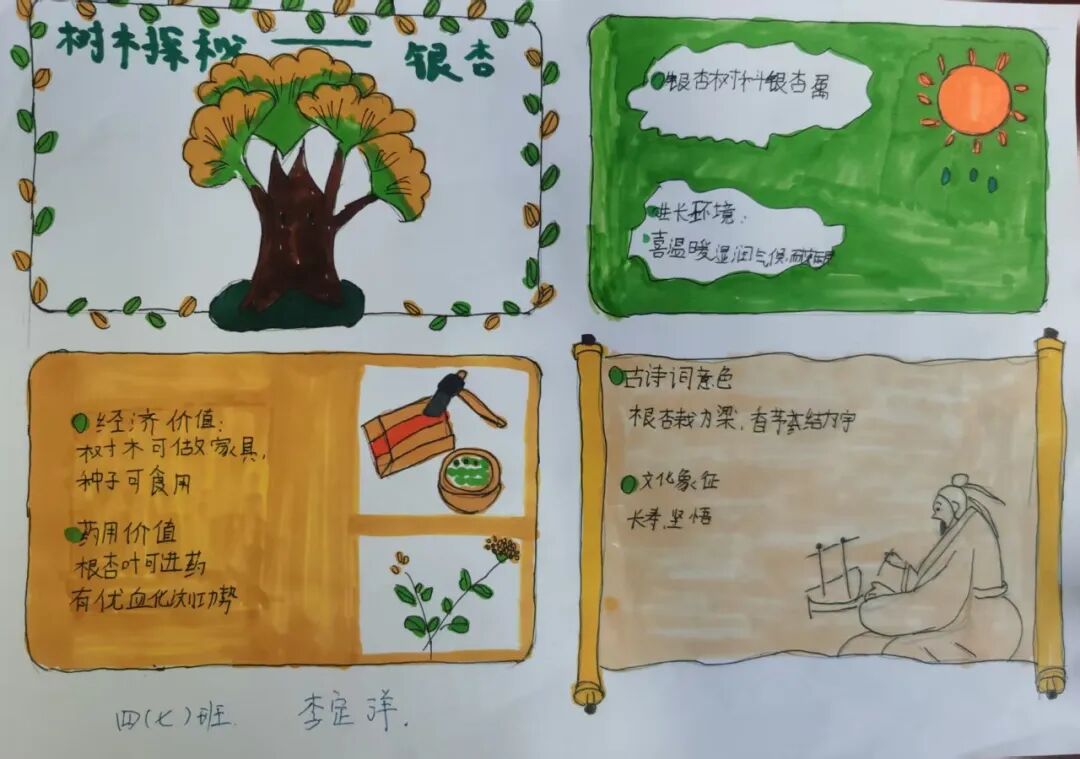 树木探秘——银杏
银杏树科银杏属
生长环境：
喜温暖湿润气候,耐
经济价值：
树木可做家具,
种子可食用
药用价值
根杏叶可进药
有优血化
古诗词意色
根杏栽为梁,香茅结为宇
文化象征
长寿,坚悟
四(七)班.
李定洋.